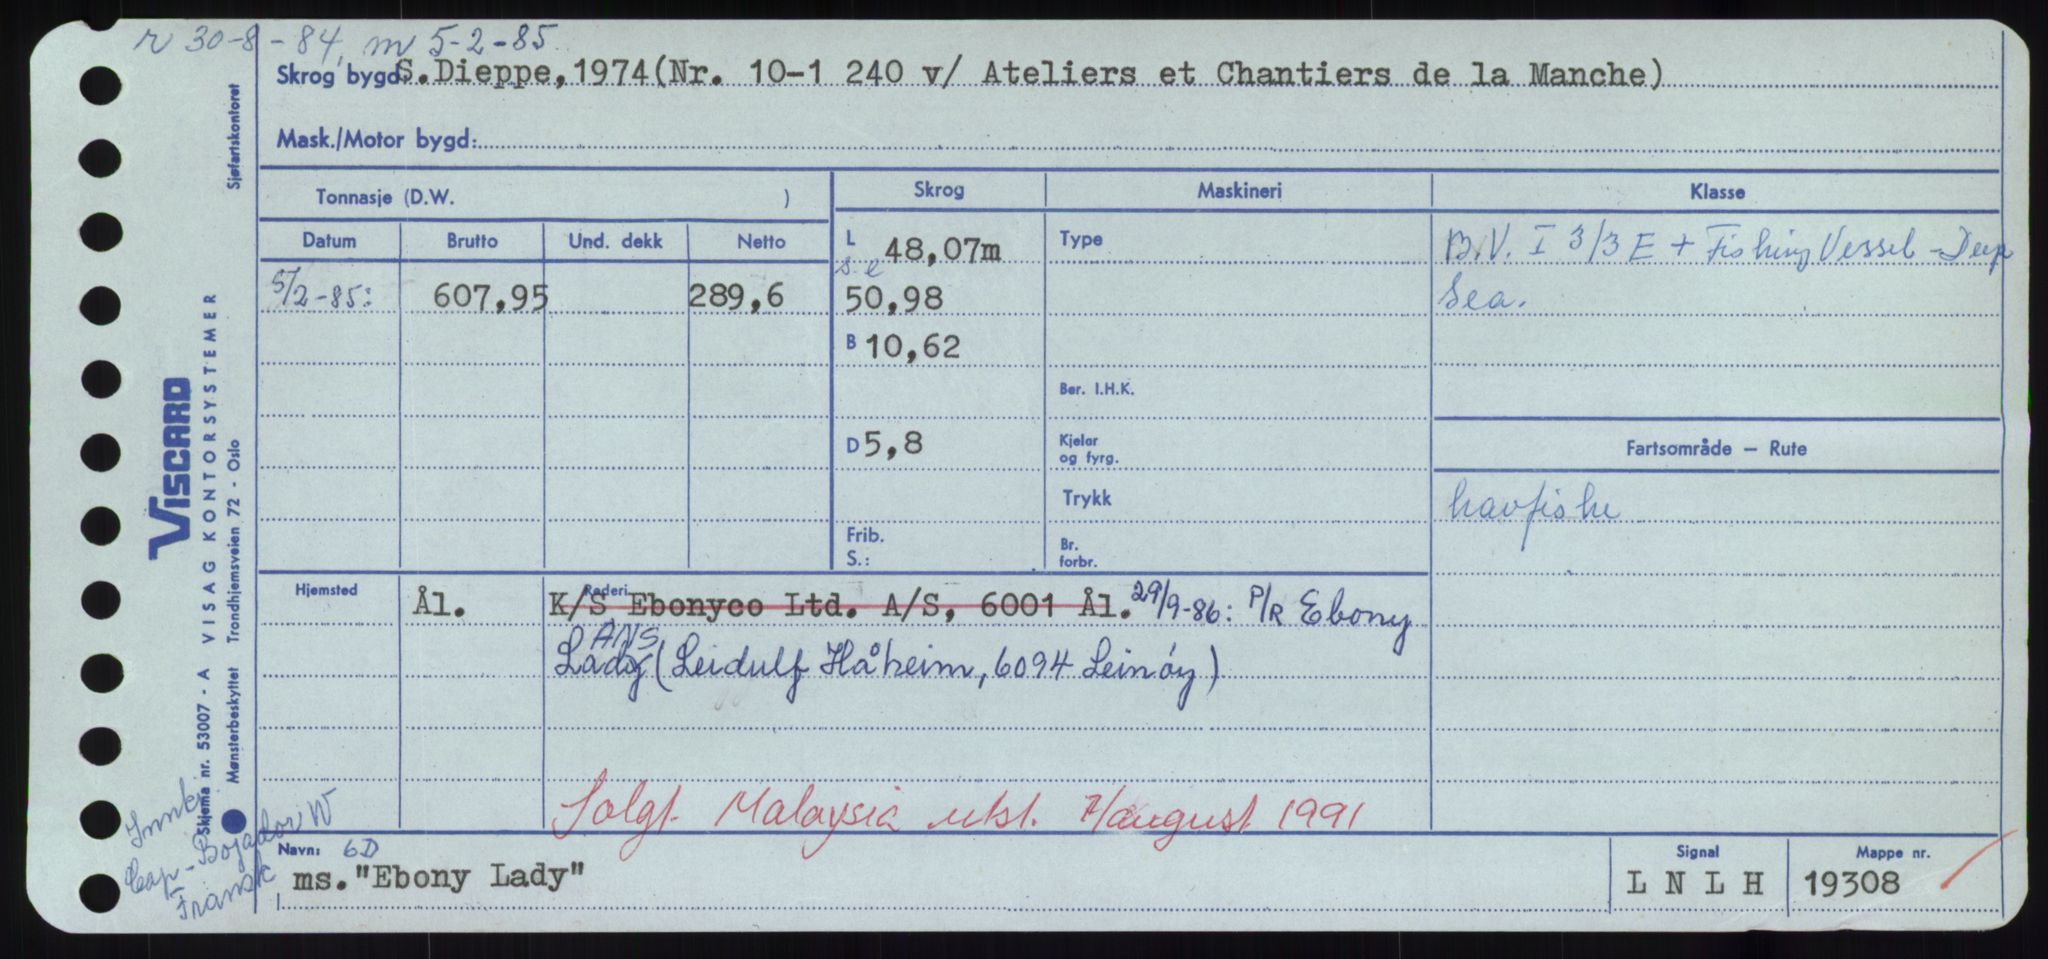 r 30-8-84, m 5-2-85
Skrog bygd S. Dieppe, 1974 (Nr. 10-1 240 v/ Ateliers et Chantiers de la Manche)
Mask./Motor bygd:
Tonnasje (D.W. )
Skrog
Maskineri
Klasse
Datum
Brutto
Und. dekk
Netto
L 48,07m
Type
B.V. I 3/3 E + Fishing Vessel - Deep
5/2-85:
607,95
289,6
50,98
Sea.
B 10,62
Ber. I.H.K.
D 5,8
Kjelar
og fyrg.
Fartsområde — Rute
Trykk
havfiske
Frib.
S.:
Br.
forbr.
Hjemsted
Ål.
Rederi
K/S Ebonyco Ltd. A/S, 6001 Ål. 29/9-86: P/R Ebony
ANS
Lady (Leidulf Håheim, 6094 Leinøy)
Solgt Malaysia utst. 7/august 1991
Navn: 6D
ms. "Ebony Lady"
Signal
L N L H
Mappe nr.
19308
Sjøfartskontoret
VISCARD
VISAG KONTORSYSTEMER
Trondhjemsveien 72 - Oslo
Skjema nr. 53007 - A
Mønsterbeskyttet
Innkj.
Cap-Bojador W
Fransk